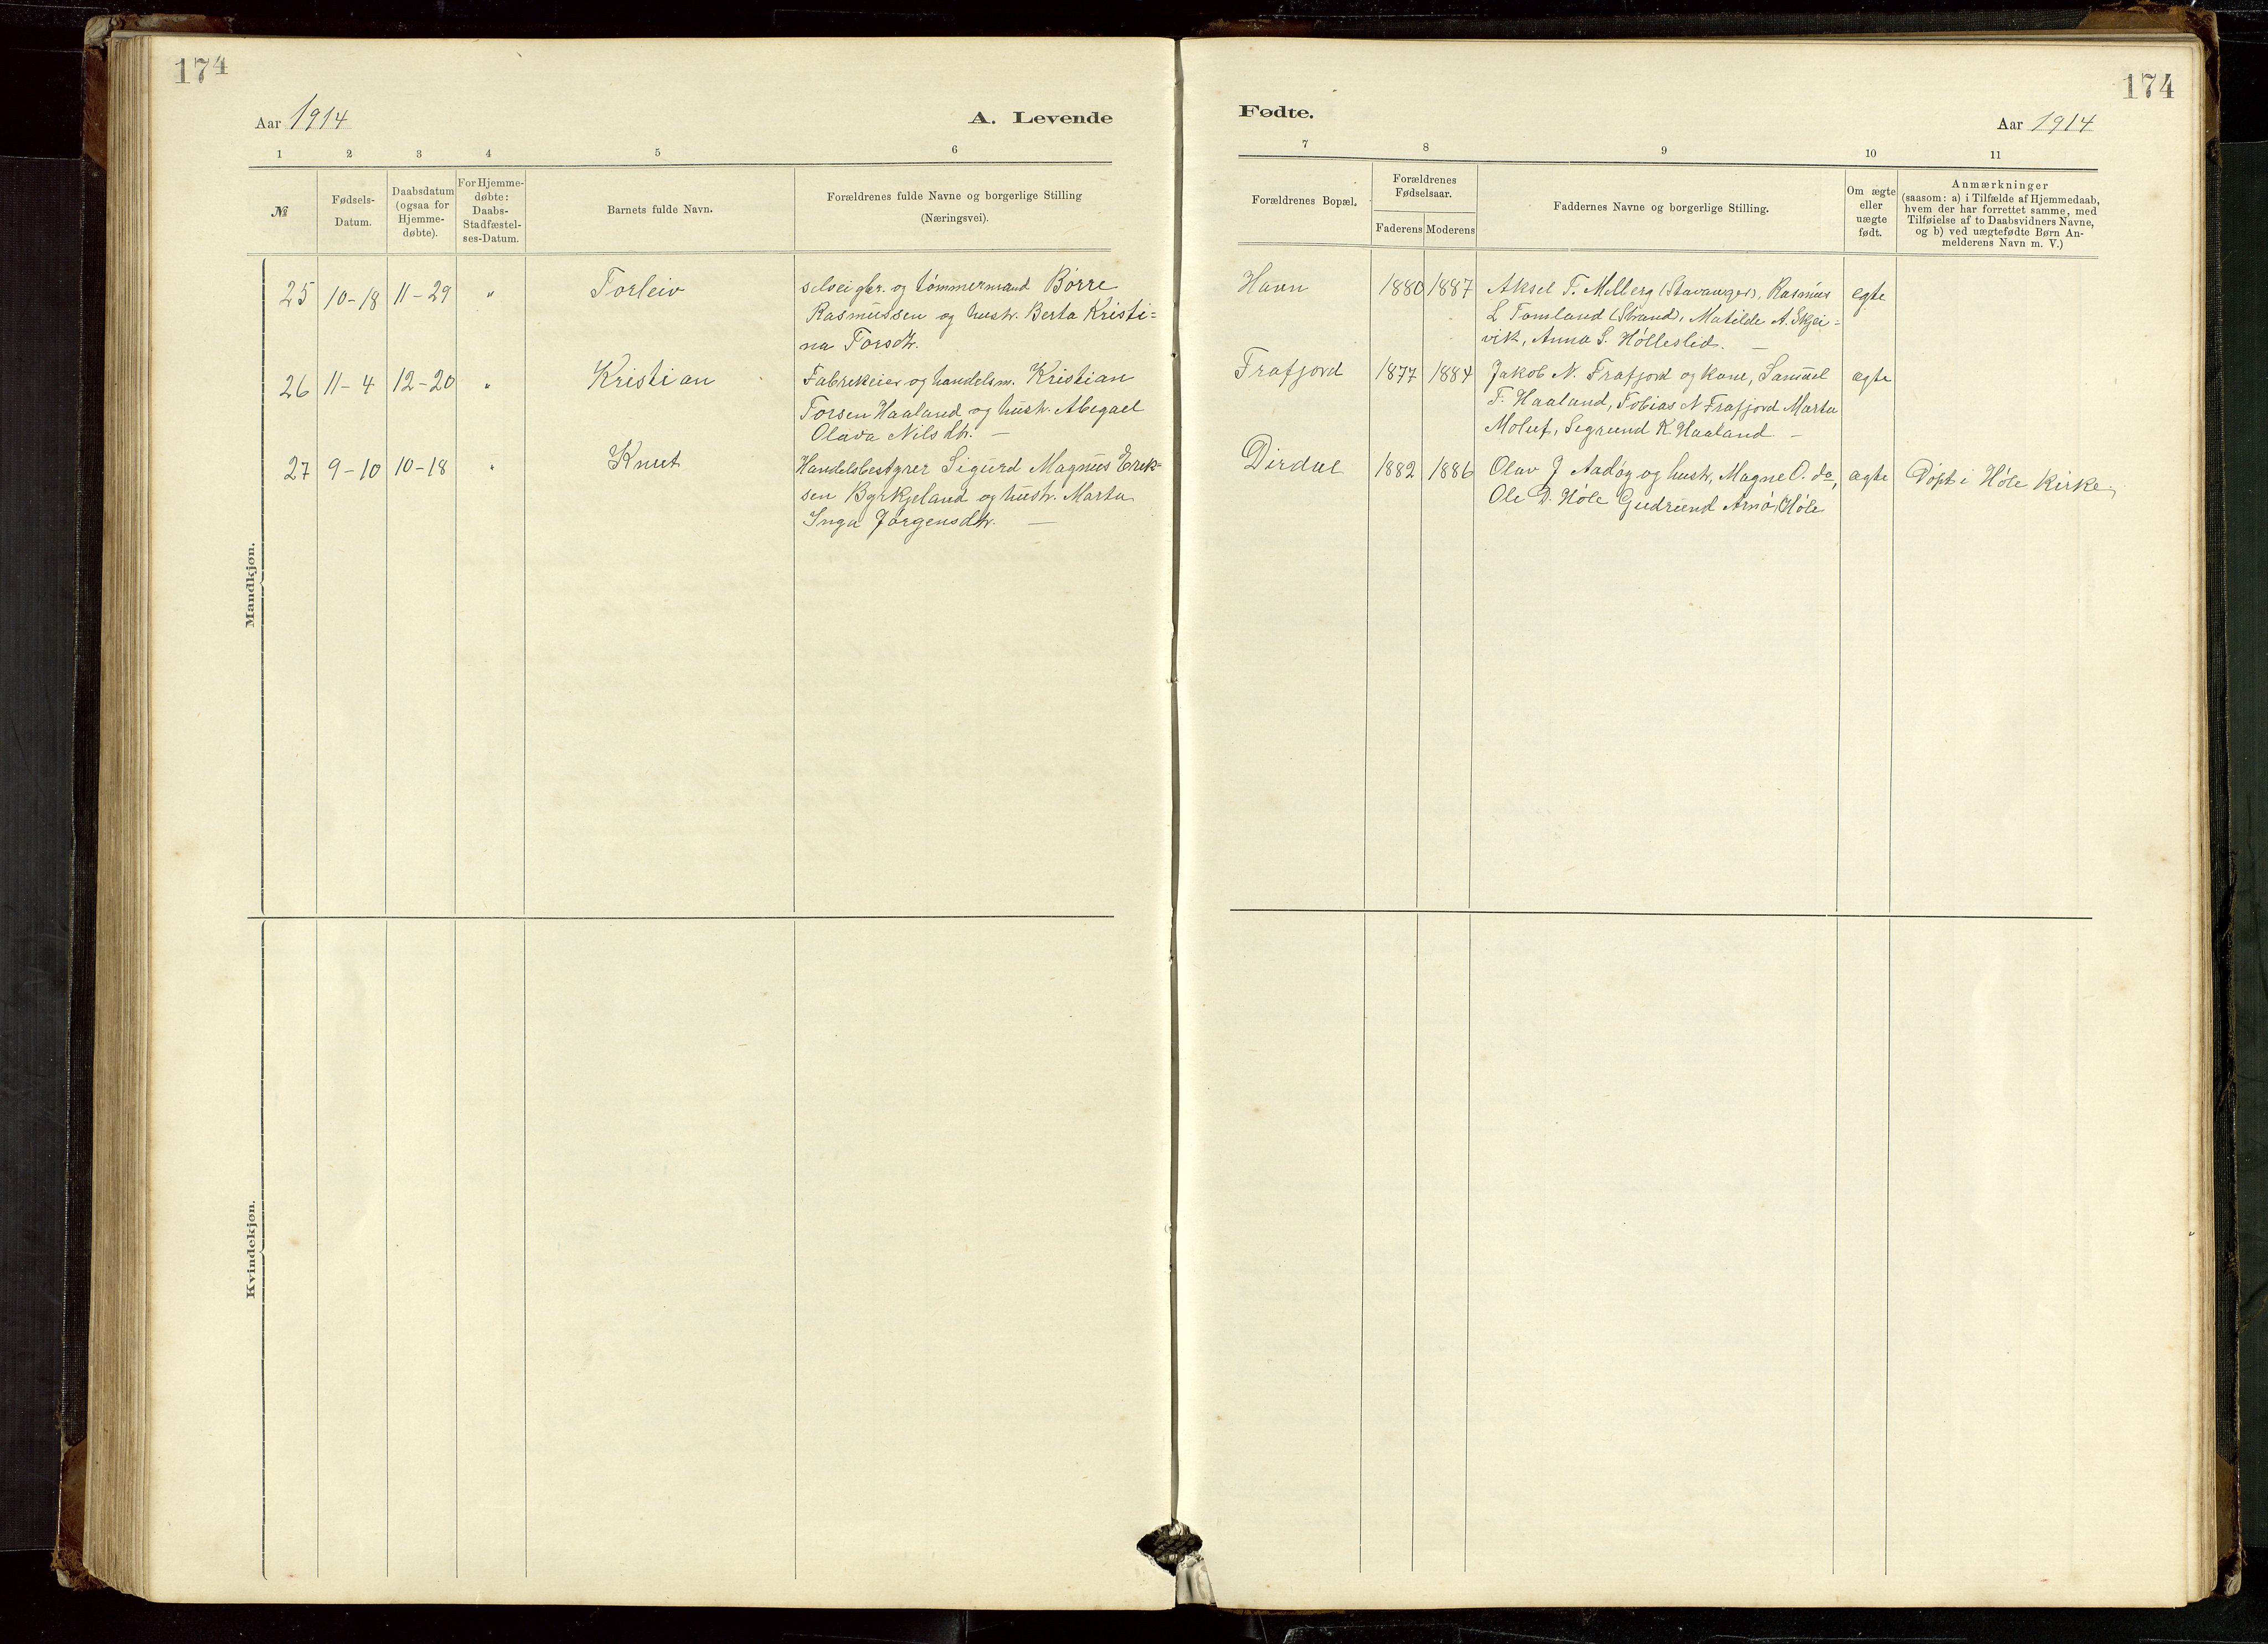 174
Aar 1914
A. Levende
1 2 3 4 5 6
№
Fødsels-
Datum.
Daabsdatum
(ogsaa for
Hjemme-
døbte).
For Hjemme-
døbte:
Daabs-
Stadfæstel-
ses-Datum.
Barnets fulde Navn.
Forældrenes fulde Navne og borgerlige Stilling
(Næringsvei).
Mandkjøn.
25 10-18 11-29 " Torleiv
selveigbr. og tømmermand Børre
Rasmussen og hustr. Berta Kristi=
na Torsdtr.
26 11-4 12-20 " Kristian
Fabrikeier og handelsm. Kristian
Torsen Haaland og hustr. Abegael
Olava Nilsdtr. —
27 9-10 10-18 " Knut
Handelsbestyrer Sigurd Magnus Erik=
sen Byrkjeland og hustr. Marta
Inga Jørgensdtr. —
Kvindekjøn.
174
Fødte.
Aar 1914
7 8 9 10 11
Forældrenes Bopæl.
Forældrenes
Fødselsaar.
Faderens Moderens
Faddernes Navne og borgerlige Stilling.
Om ægte
eller
uægte
født.
Anmærkninger
(saasom: a) i Tilfælde af Hjemmedaab,
hvem der har forrettet samme, med
Tilføielse af to Daabsvidners Navne,
og b) ved uægtefødte Børn An-
melderens Navn m. V.)
Havn 1880 1887 Aksel T. Melberg (Stavanger), Rasmus egte
L Tomland (Strand), Matilde A. Skjei=
vik, Anna S. Hølleslid. —
Frafjord 1877 1884 Jakob N. Frafjord og kone, Samuel ægte
T. Haaland, Tobias N Frafjord Marta
Moluf, Segrund K. Haaland —
Dirdal 1882 1886 Olav J Aadøy og hustr, Magne O. do, ægte Døpt i Høle Kirke.
Ole D. Høle Gudrund Arnø, Høle